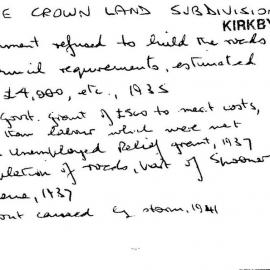 E CROWN LAND SUBDIVISION
KIRKBY
ment refused to build the roads
requirements, estimated
£4,000, etc., 1935
Govt. grant of £500 to meet costs,
labour which were met
Unemployed Relief grant, 1937
of roads, West of Spooner
1937
out caused by storm, 1941